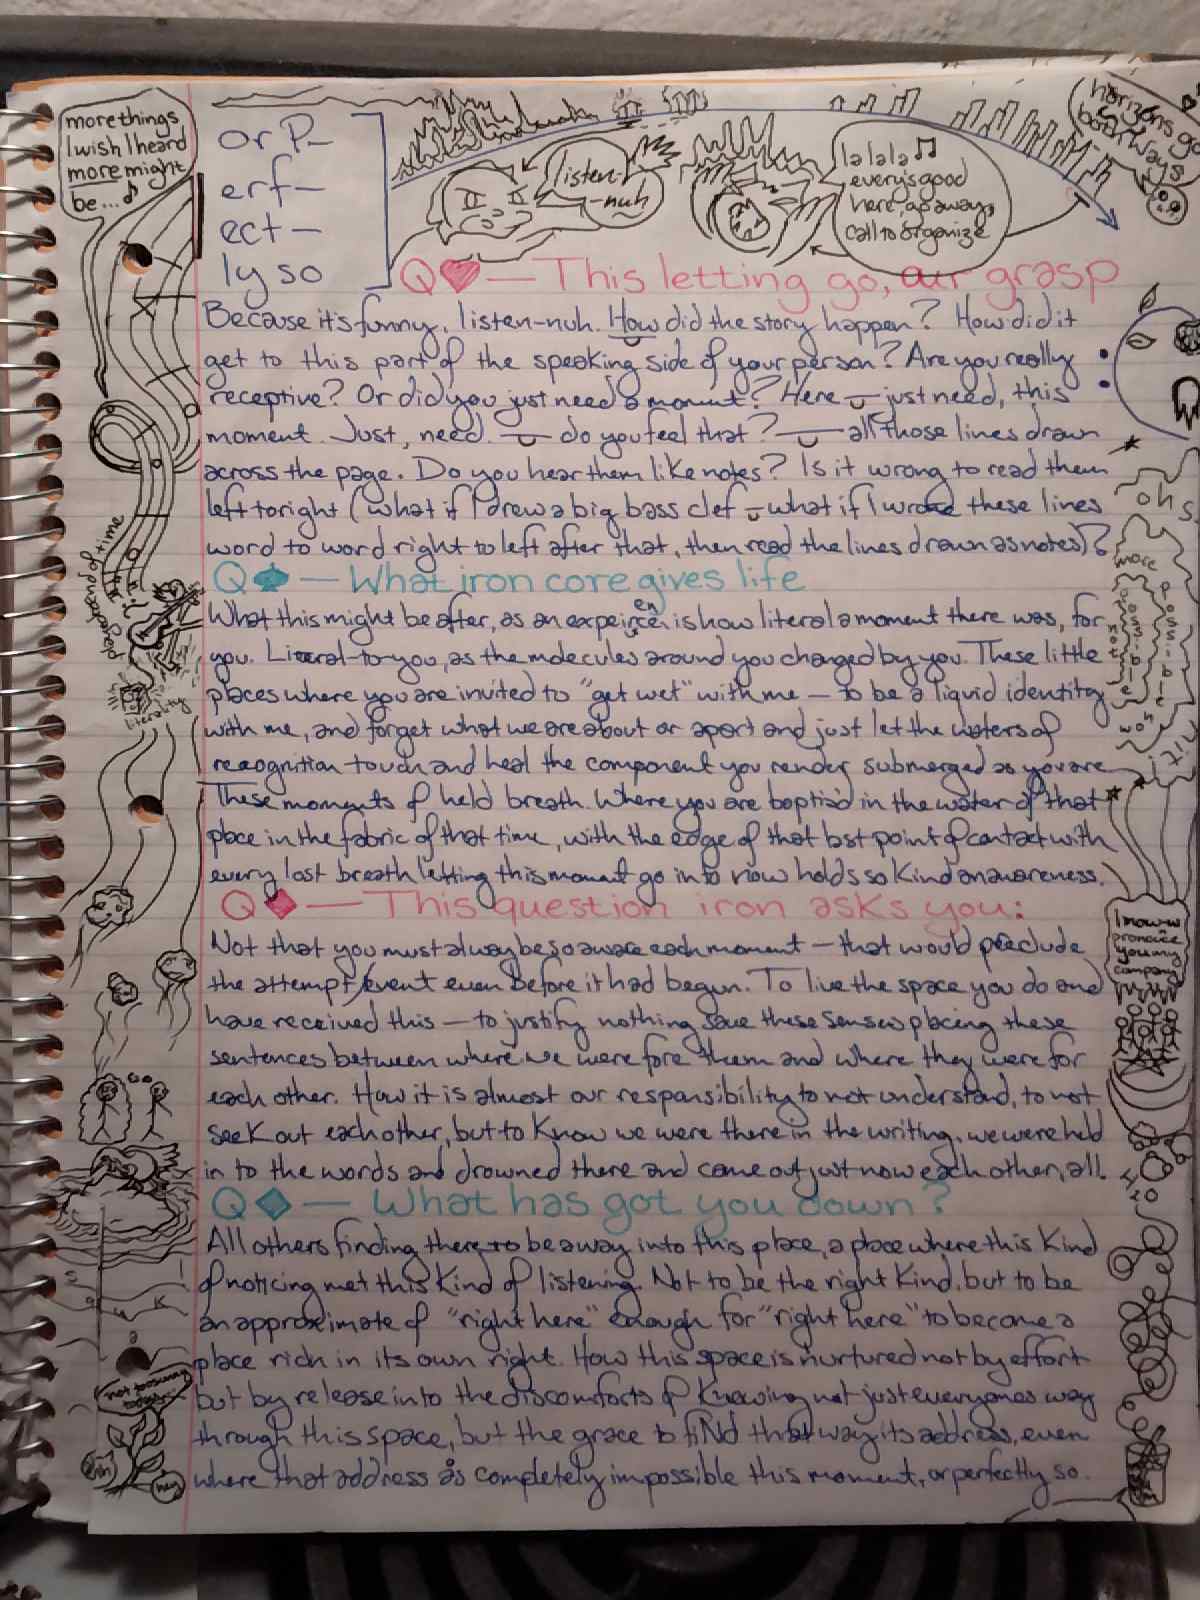 more things
I wish I heard
more might
be...♪
or P–
erf–
ect–
ly so
listen-
-nuh
la la la ♫
every is good
here, go away,
call to organize
horizons go
both ways
Q♥ — This letting go, our grasp
Because it's funny, listen-nuh. How did the story happen? How did it
get to this part of the speaking side of your person? Are you really
receptive? Or did you just need a moment? Here — just need, this
moment. Just, need. — do you feel that? — all those lines drawn
across the page. Do you hear them like notes? Is it wrong to read them
left to right (what if I drew a big bass clef — what if I wrote these lines
word to word right to left after that, then read the lines drawn as notes)?
Q♠ — What iron core gives life
What this might be after, as an expeircen en is how literal a moment there was, for
you. Literal-to-you, as the molecules around you changed by you. These little
places where you are invited to "get wet" with me — to be a liquid identity
with me, and forget what we are about or apart and just let the waters of
recognition touch and heal the component you render submerged as you are.
These moments of held breath. Where you are baptis'd in the water of that
place in the fabric of that time, with the edge of that last point of contact with
every lost breath letting this moment go in to now holds so kind an awareness.
Q♦ — This question iron asks you:
Not that you must alway be so aware each moment — that would preclude
the attempt/event even before it had begun. To live the space you do and
have received this — to justify nothing save these senses placing these
sentences between where we were fore them and where they were for
each other. How it is almost our responsibility to not understand, to not
seek out each other, but to know we were there in the writing, we were held
in to the words and drowned there and came out just now each other, all.
Q◆ — What has got you down?
All others finding there to be away into this place, a place where this kind
of noticing met this kind of listening. Not to be the right kind, but to be
an approximate of "right here" enough for "right here" to become a
place rich in its own right. How this space is nurtured not by effort
but by release into the discomforts of knowing not just everyones way
through this space, but the grace to fiNd that way its address, even
where that address is completely impossible this moment, or perfectly so.
of time
literality
oh s
more
possible
not
woh
nit
I now-w
pronounce
you my
company
420
hey